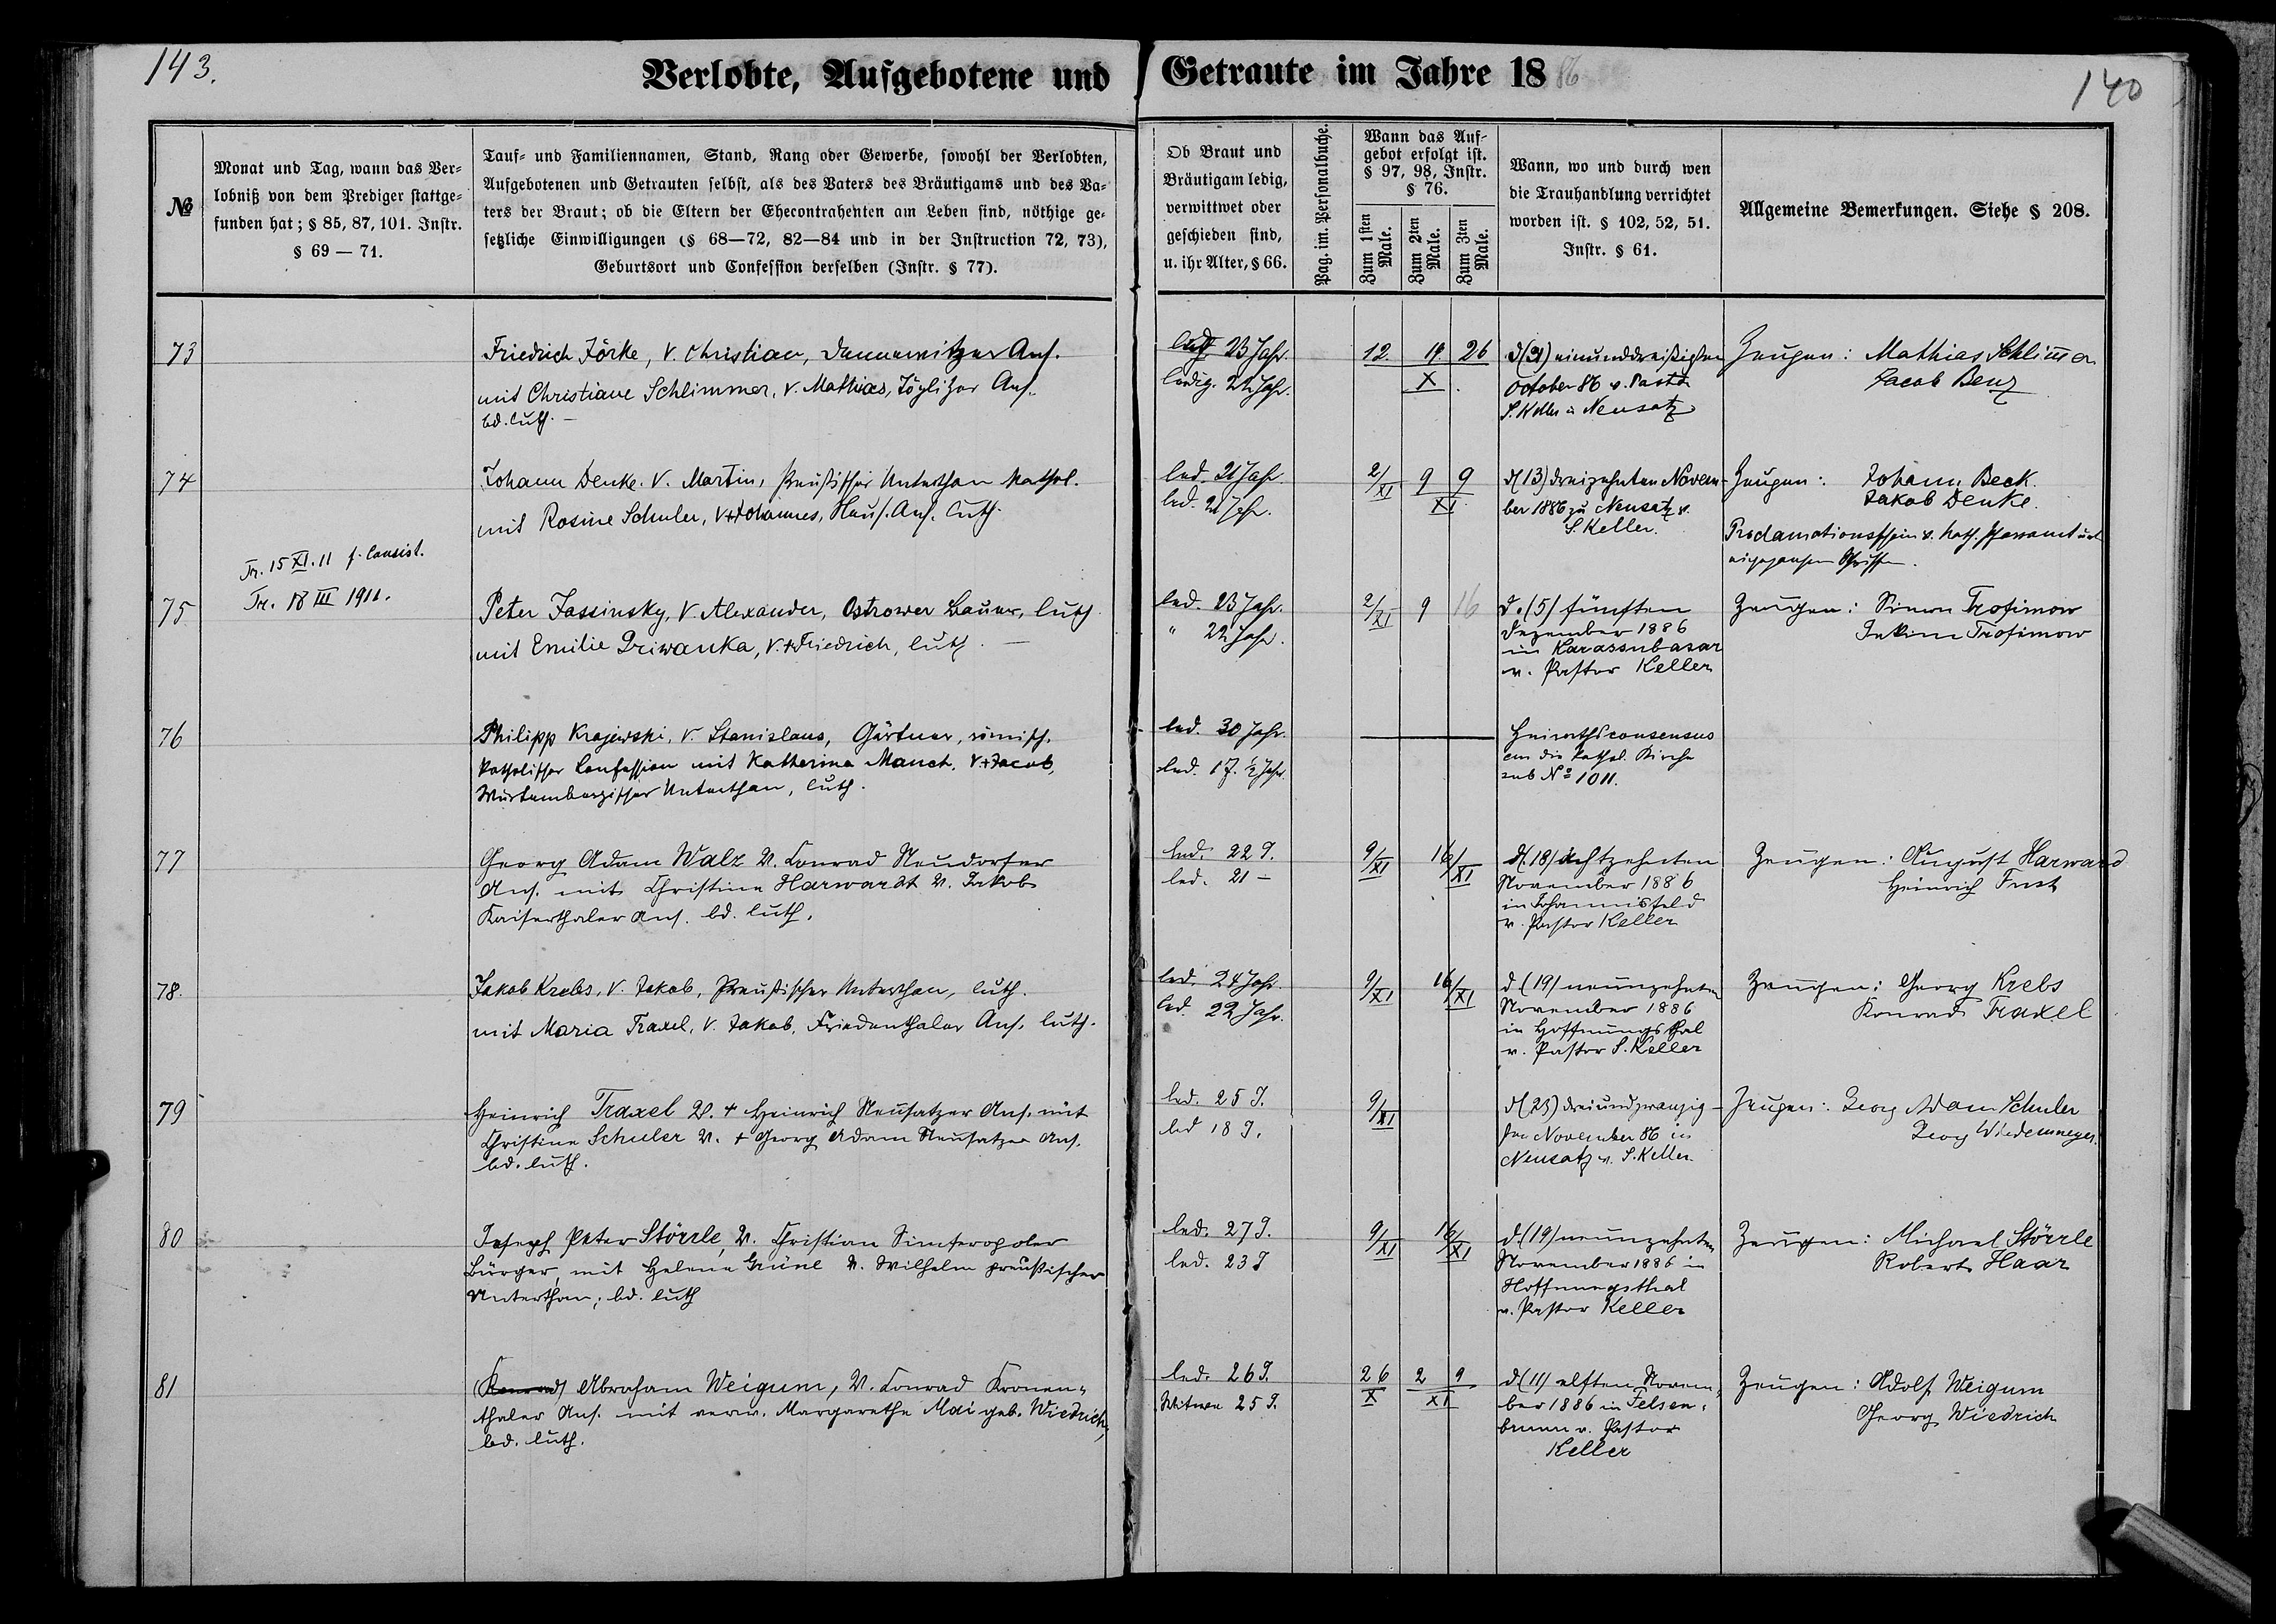 143.
Verlobte, Aufgebotene und Getraute im Jahre 1886
140
№
Monat und Tag, wann das Ver-
lobniß von dem Prediger stattge-
funden hat; § 85, 87, 101. Instr.
§ 69 — 71.
Tauf- und Familiennamen, Stand, Rang oder Gewerbe, sowohl der Verlobten,
Aufgebotenen und Getrauten selbst, als des Vaters des Bräutigams und des Va-
ters der Braut; ob die Eltern der Ehecontrahenten am Leben sind, nöthige ge-
setzliche Einwilligungen (§ 68—72, 82—84 und in der Instruction 72, 73),
Geburtsort und Confession derselben (Instr. § 77).
Ob Braut und
Bräutigam ledig,
verwittwet oder
geschieden sind,
u. ihr Alter, § 66.
Pag. im. Personalbuche.
Wann das Auf-
gebot erfolgt ist.
§ 97, 98, Instr.
§ 76.
Zum 1sten Male.
Zum 2ten Male.
Zum 3ten Male.
Wann, wo und durch wen
die Trauhandlung verrichtet
worden ist. § 102, 52, 51.
Instr. § 61.
Allgemeine Bemerkungen. Siehe § 208.
73
Friedrich Jörke, V. Christian, Dennewitzer Ans.
mit Christiane Schlimmer, V. Mathias, Ans.
bd. luth. —
23 Jahr.
ledig. 22 Jahr.
12. 19 26
X
d (31) einunddreißigsten
October 86 v. Pastor
S. Keller in Neusatz
Zeugen: Mathias Schlimer
Jacob Benz
74
Johann Denke. V. Martin, Preußischer Unterthan kathol.
mit Rosine Schuler, V. + Johannes, Neus. Ans. luth.
led. 21 Jahr
led. 21 Jahr.
2/XI 9 9
XI
d (13) dreizehnten Novem-
ber 1886 zu Neusatz v.
S. Keller.
Zeugen: Johann Beck.
Jakob Denke.
Proclamationsschein v. kath. Pfarramt
Tr. 15 XI. 11 f. Consist.
Tr. 18 III 1911.
75
Peter Jassinsky, V. Alexander, Ostrower Bauer, luth.
mit Emilie Priwanka, V. + Friedrich, luth. —
led. 23 Jahr.
" 22 Jahr.
2/XI 9 16
d. (5) fünften
Dezember 1886
in Karassubasar
v. Pastor Keller
Zeugen: Simon Trofimow
Jakim Trofimow
76
Philipp Krajewski, V. Stanislaus, Gärtner, römisch.
katholischer Confession mit Katherina Mauch. V. + Jacob,
Würtembergischer Unterthan, luth.
led. 30 Jahr.
led. 17. ½ Jahr.
Heirathsconsensus
an die kathol. Kirche
sub № 1011.
77
Georg Adam Walz V. Conrad Neudorfer
Ans. mit Christine Harwardt V. Jakob
Kaiserthaler Ans. bd. luth.
led. 22 J.
led. 21 —
9/XI 16/XI
d (18) achtzehnten
November 1886
in Johannisfeld
v. Pastor Keller
Zeugen: August Harward
Heinrich Fust
78.
Jakob Krebs, V. Jakob, Preußischer Unterthan, luth.
mit Maria Traxel, V. Jakob, Friedenthaler Ans. luth.
led. 24 Jahr
led. 22 Jahr.
9/XI 16/XI
d (19) neunzehnten
November 1886
in Hoffnungsthal
v. Pastor S. Keller
Zeugen: Georg Krebs
Konrad Traxel
79
Heinrich Traxel V. + Heinrich Neusatzer Ans. mit
Christine Schuler V. + Georg Adam Neusatzer Ans.
bd. luth.
led. 25 J.
led 18 J.
9/XI
d (23) dreiundzwanzig-
sten November 86 in
Neusatz v. S. Keller
Zeugen: Georg Adam Schuler
Georg Wiedenmeyer.
80
Joseph Peter Störrle, V. Christian Simferopoler
Bürger, mit Helena Grünl V. Wilhelm preußischer
Unterthan; bd. luth
led. 27 J.
led. 23 J
9/XI 16/XI
d (19) neunzehnten
November 1886 in
Hoffnungsthal
v. Pastor Keller
Zeugen: Michael Störrle
Robert Haar
81
(Konrad) Abraham Weigum, V. Conrad Kronen-
thaler Ans. mit verw. Margarethe Mai geb. Wiedrich,
bd. luth.
led. 26 J.
Witwe 25 J.
26 2 9
X XI
d (11) elften Novem-
ber 1886 in Felsen-
brunn v. Pastor
Keller
Zeugen: Adolf Weigum
Georg Wiedrich